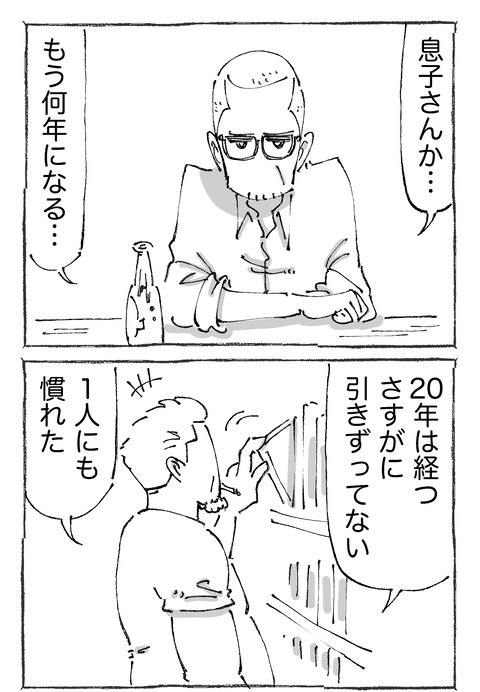 息子さんか…
もう何年になる…
20年は経つ
さすがに
引きずってない
1人にも
慣れた